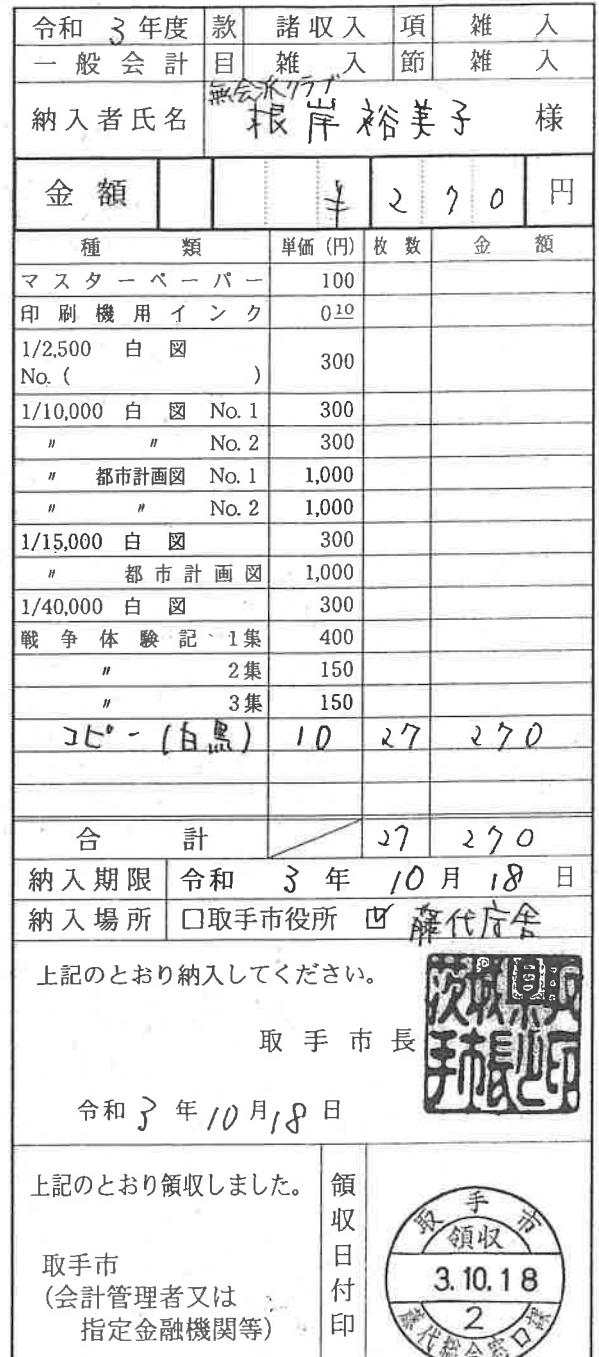 令和 3 年度 款 諸収入 項 雑入
一般会計 目 雑入 節 雑入
無会派クラブ
納入者氏名 根岸裕美子 様
金額 ¥270 円
種類 単価(円) 枚数 金額
マスターペーパー 100
印刷機用インク 0.10
1/2,500 白図
No. ( ) 300
1/10,000 白図 No. 1 300
〃 〃 No. 2 300
〃 都市計画図 No. 1 1,000
〃 〃 No. 2 1,000
1/15,000 白図 300
〃 都市計画図 1,000
1/40,000 白図 300
戦争体験記 1集 400
〃 2集 150
〃 3集 150
コピー(白黒) 10 27 270
合計 27 270
納入期限 令和 3 年 10 月 18 日
納入場所 □取手市役所 ☑ 藤代庁舎
上記のとおり納入してください。
取手市長
茨城県取手市長之印
令和 3 年 10 月 18 日
上記のとおり領収しました。
取手市
(会計管理者又は
指定金融機関等)
領収日付印
取手市
領収
3.10.18
2
藤代総合窓口課